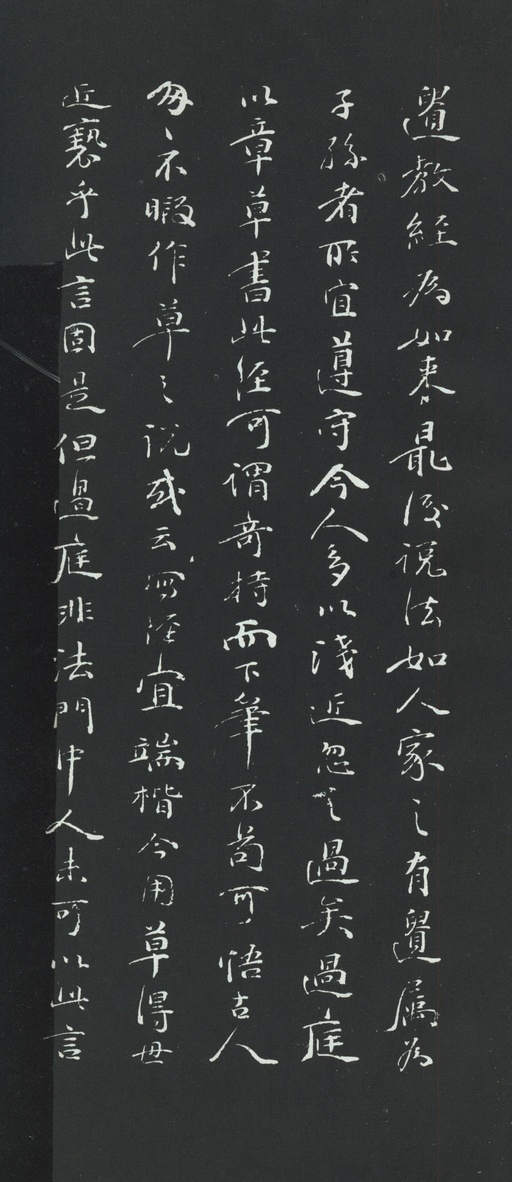 遺教經為如來最後說法如人家之有遺屬為
子孫者所宜遵守今人多以淺近忽之過矣過庭
以章草書此經可謂奇特而下筆不苟可悟古人
匆匆不暇作草之說或云寫經宜端楷今用草得毋
近褻乎此言固是但過庭非法門中人未可以此言